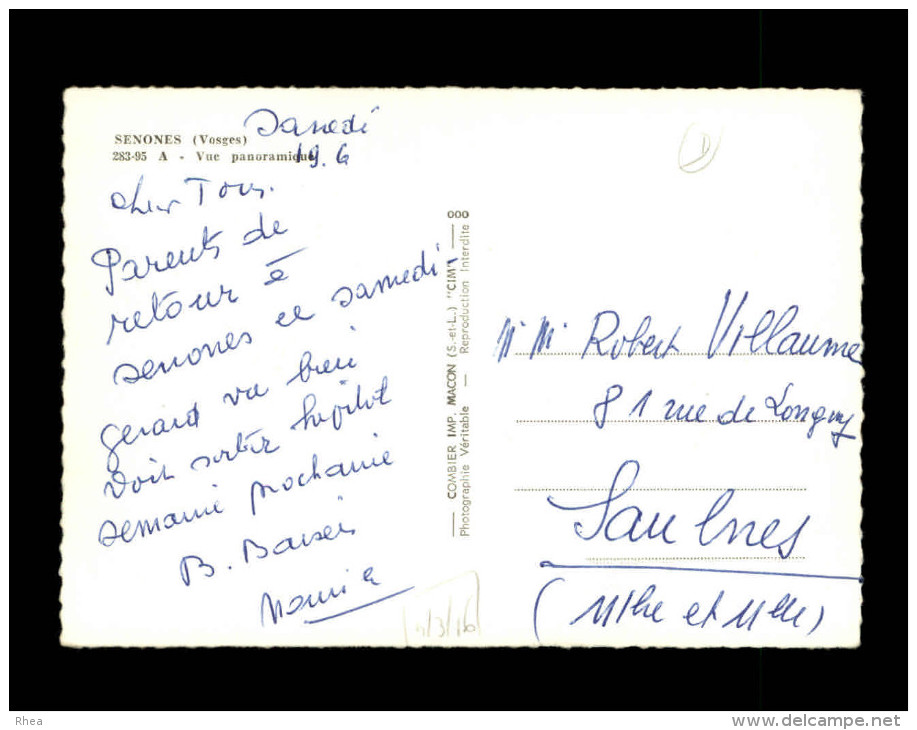 SENONES (Vosges)
283-95 A - Vue panoramique
Samedi
19.6
cher Tous.
Parents de
retour à
senones ce samedi-
gerard va bien
doit sortir hopital
semaine prochaine
B. Baisers
Mamie
COMBIER IMP. MACON (S.-et-L.) "CIM" 000
Photographie Véritable — Reproduction Interdite
Mr Mme Robert Villaume
81 rue de Longwy
Saulnes
(Mthe et Mlle)
D
Rhea
www.delcampe.net